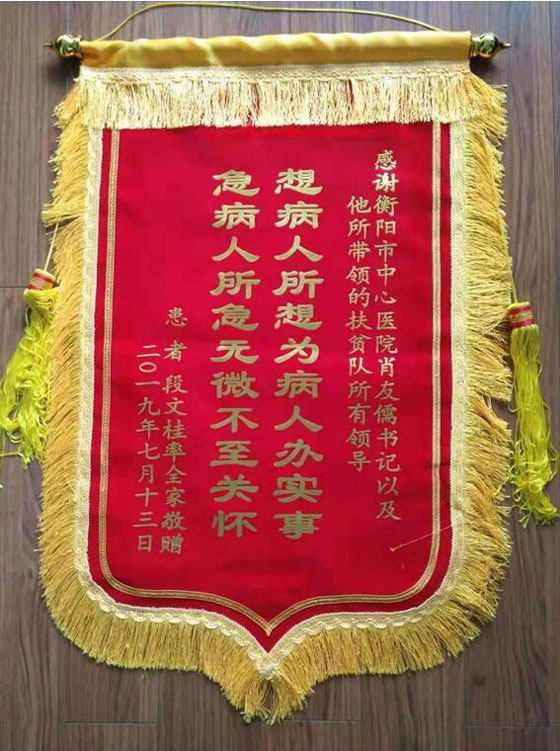 感谢衡阳市中心医院肖友儒书记以及
他所带领的扶贫队所有领导
想病人所想为病人办实事
急病人所急无微不至关怀
患者段文桂率全家敬赠
二〇一九年七月十三日